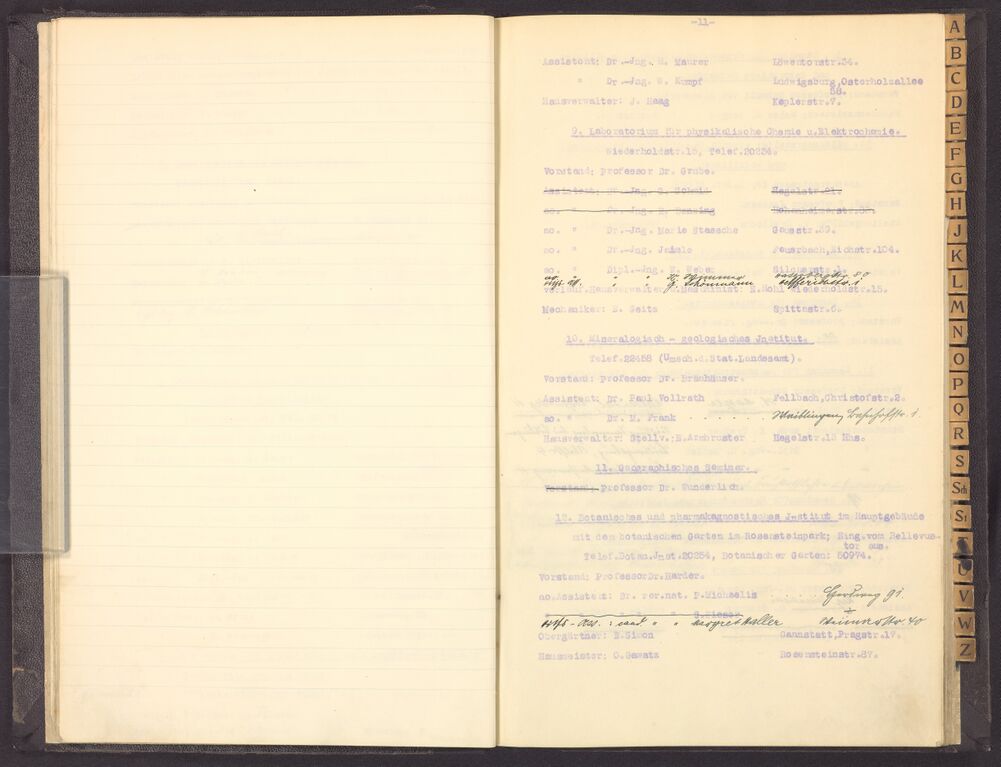 -11-
Assistent: Dr.-Jng. H. Maurer Löwentorstr.54.
" Dr.-Jng. W. Kumpf Ludwigsburg,Osterholzallee
88.
Hausverwalter: J. Haag Keplerstr.7.
9. Laboratorium für physikalische Chemie u.Elektrochemie.
Wiederholdstr.15, Telef.20254.
Vorstand: Professor Dr. Grube.
Assistent: Dr. Jng. Schmid Hegelstr.21.
ao. " Dr.-Jng.
ao. " Dr.-Jng. Marie Stassche Gausstr.89.
ao. " Dr.-Jng. Jaisle Feuerbach,Eichstr.104.
ao. " Dipl.-Jng. F. Weber Silcherstr.1.
Hausverwalter Maschinist: E.Mohl Wiederholdstr.15.
Mechaniker: E. Seitz Spittastr.6.
10. Mineralogisch - geologisches Jnstitut.
Telef.22458 (Umsch.d.Stat.Landesamt).
Vorstand: Professor Dr. Bräuhäuser.
Assistent: Dr. Paul Vollrath Fellbach,Christofstr.2.
ao. " Dr. M. Frank . . . . . Waiblingen, Bahnhofstr. 1
Hausverwalter: Stellv.:E.Armbruster Hegelstr.13 Hhs.
11. Geographisches Seminar.
Vorstand: Professor Dr. Wunderlich.
12. Botanisches und pharmakognostisches J-stitut im Hauptgebäude
mit dem botanischen Garten im Rosensteinpark; Eing.vom Bellevue-
tor aus.
Telef.Botan.Jnst.20254, Botanischer Garten: 50974.
Vorstand: ProfessorDr.Harder.
ao.Assistent: Dr. rer.nat. P.Michaelis . . . . . Herdweg 91
Obergärtner: E.Simon Cannstatt,Pragstr.17.
Hausmeister: O.Gawatz Rosensteinstr.87.
A
B
C
D
E
F
G
H
J
K
L
M
N
O
P
Q
R
S
Sch
St
T
U
V
W
Z